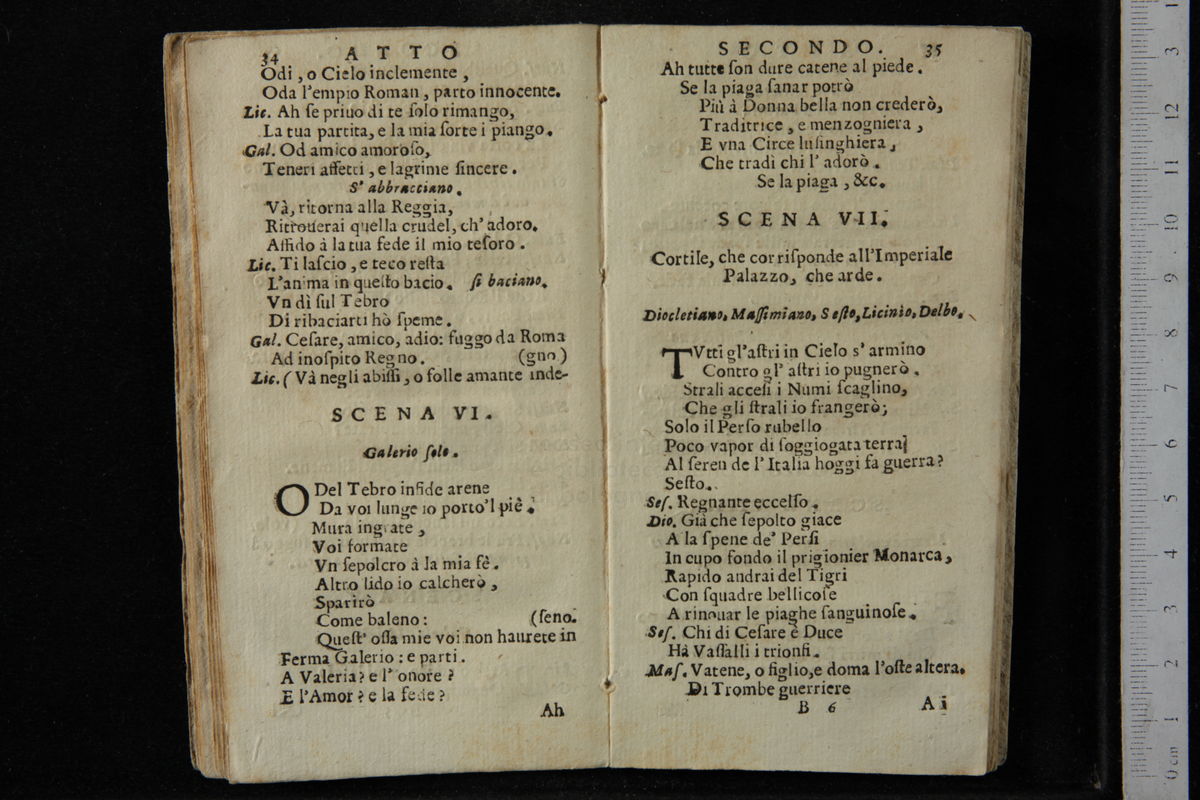 34 ATTO
Odi, o Cielo inclemente,
Oda l'empio Roman, parto innocente.
Lic. Ah ſe priuo di te ſolo rimango,
La tua partita, e la mia ſorte i piango.
Gal. Od amico amoroſo,
Teneri affetti, e lagrime ſincere.
S' abbracciano.
Và, ritorna alla Reggia,
Ritrouerai quella crudel, ch' adoro.
Affido à la tua fede il mio teſoro.
Lic. Ti laſcio, e teco reſta
L'anima in queſto bacio. ſi baciano.
Vn dì ſul Tebro
Di ribaciarti hò ſpeme.
Gal. Ceſare, amico, adio: fuggo da Roma
Ad inoſpito Regno. (gno)
Lic. (Và negli abiſſi, o folle amante inde-
SCENA VI.
Galerio ſolo.
O Del Tebro infide arene
Da voi lunge io porto'l piè.
Mura ingrate,
Voi formate
Vn ſepolcro à la mia fè.
Altro lido io calcherò,
Sparirò
Come baleno: (ſeno.
Queſt' oſſa mie voi non haurete in
Ferma Galerio: e parti.
A Valeria? e l' onore?
E l'Amor? e la fede?
Ah
SECONDO. 35
Ah tutte ſon dure catene al piede.
Se la piaga ſanar potrò
Più à Donna bella non crederò,
Traditrice, e menzogniera,
E vna Circe luſinghiera,
Che tradì chi l' adorò.
Se la piaga, &c.
SCENA VII.
Cortile, che corriſponde all'Imperiale
Palazzo, che arde.
Diocletiano, Maſſimiano, Seſto, Licinio, Delbo.
TVtti gl'aſtri in Cielo s' armino
Contro gl' aſtri io pugnerò.
Strali acceſi i Numi ſcaglino,
Che gli ſtrali io frangerò;
Solo il Perſo rubello
Poco vapor di ſoggiogata terra
Al ſeren de l' Italia hoggi fa guerra?
Seſto.
Seſ. Regnante eccelſo.
Dio. Già che ſepolto giace
A la ſpene de' Perſi
In cupo fondo il prigionier Monarca,
Rapido andrai del Tigri
Con ſquadre bellicoſe
A rinouar le piaghe ſanguinoſe.
Seſ. Chi di Ceſare è Duce
Hà Vaſſalli i trionfi.
Maſ. Vatene, o figlio, e doma l'oſte altera.
Di Trombe guerriere
B 6 Ai
0 cm 1 2 3 4 5 6 7 8 9 10 11 12